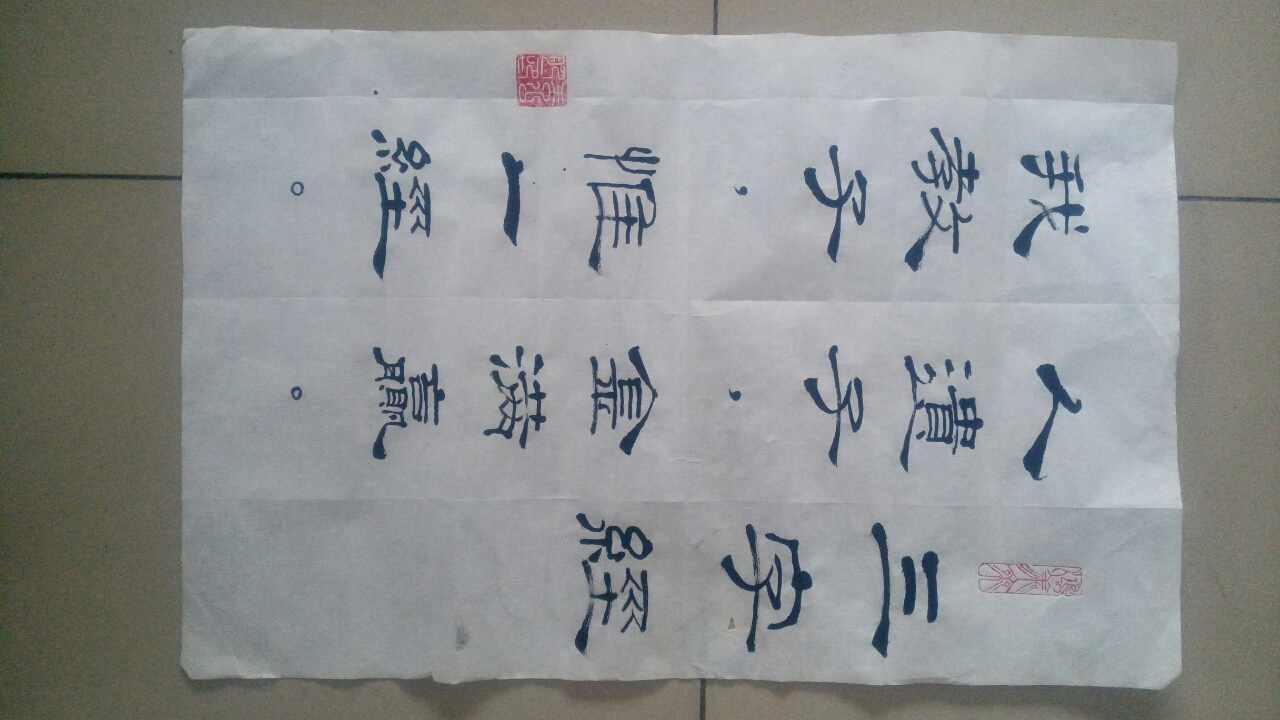 三字經
人遺子，金满贏。
我教子，惟一經。